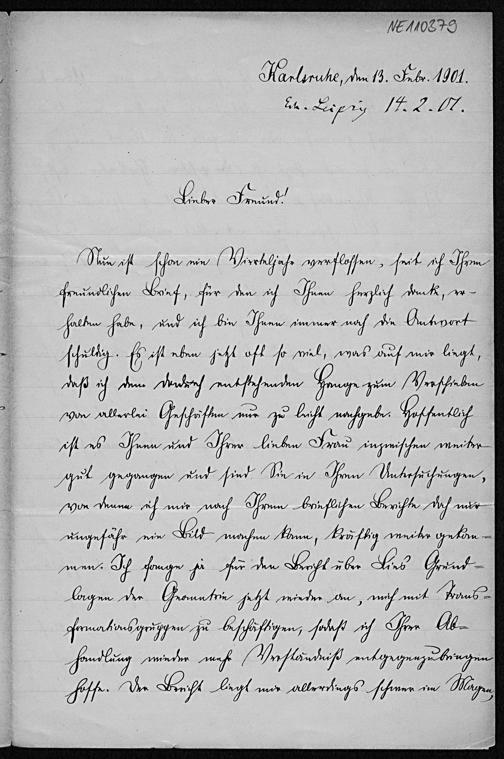 NE110379
Karlsruhe, den 13. Febr. 1901.
Leipzig 14.2.01.
Lieber Freund!
Nun ist schon ein Vierteljahr verflossen, seit ich Ihren
freundlichen Brief, für den ich Ihnen herzlich dank, er-
halten habe, und ich bin Ihnen immer noch die Antwort
schuldig. Es ist eben jetzt oft so viel, was auf mir liegt,
daß ich dem dadurch entstehenden Hange zum Verschieben
von allerlei Geschäften nur zu leicht nachgebe. Hoffentlich
ist es Ihnen und Ihrer lieben Frau inzwischen weiter
gut gegangen und sind Sie in Ihren Untersuchungen,
von denen ich mir nach Ihrem brieflichen Berichte doch nur
ungefähr ein Bild machen kann, kräftig weiter gekom-
men. Ich fange ja für den Bericht über Lies Grund-
lagen der Geometrie jetzt wieder an, mich mit Trans-
formationsgruppen zu beschäftigen, sodaß ich Ihrer Ab-
handlung wieder mehr Verständniß entgegenzubringen
hoffe. Der Bericht liegt mir allerdings schwer im Magen,